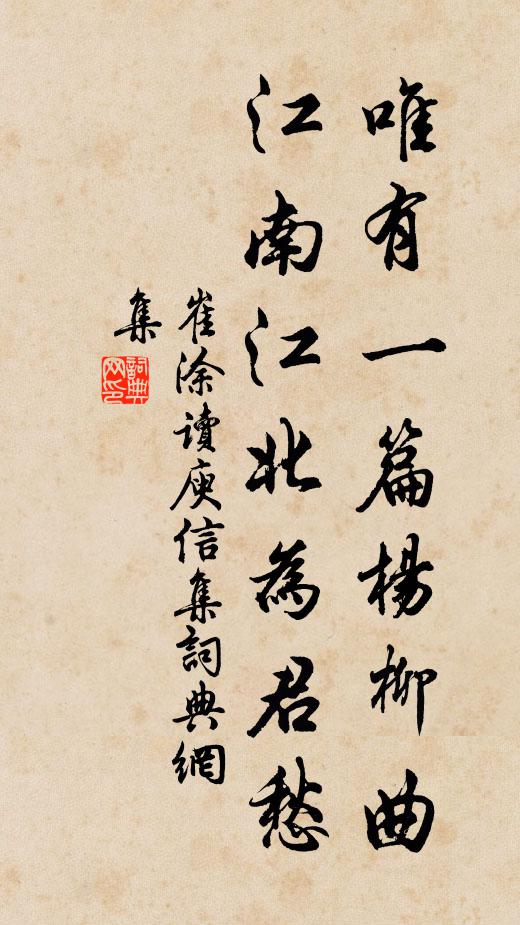 唯有一篇楊柳曲
江南江北為君愁
崔涂讀庾信集詞典網
集
詞典
网印